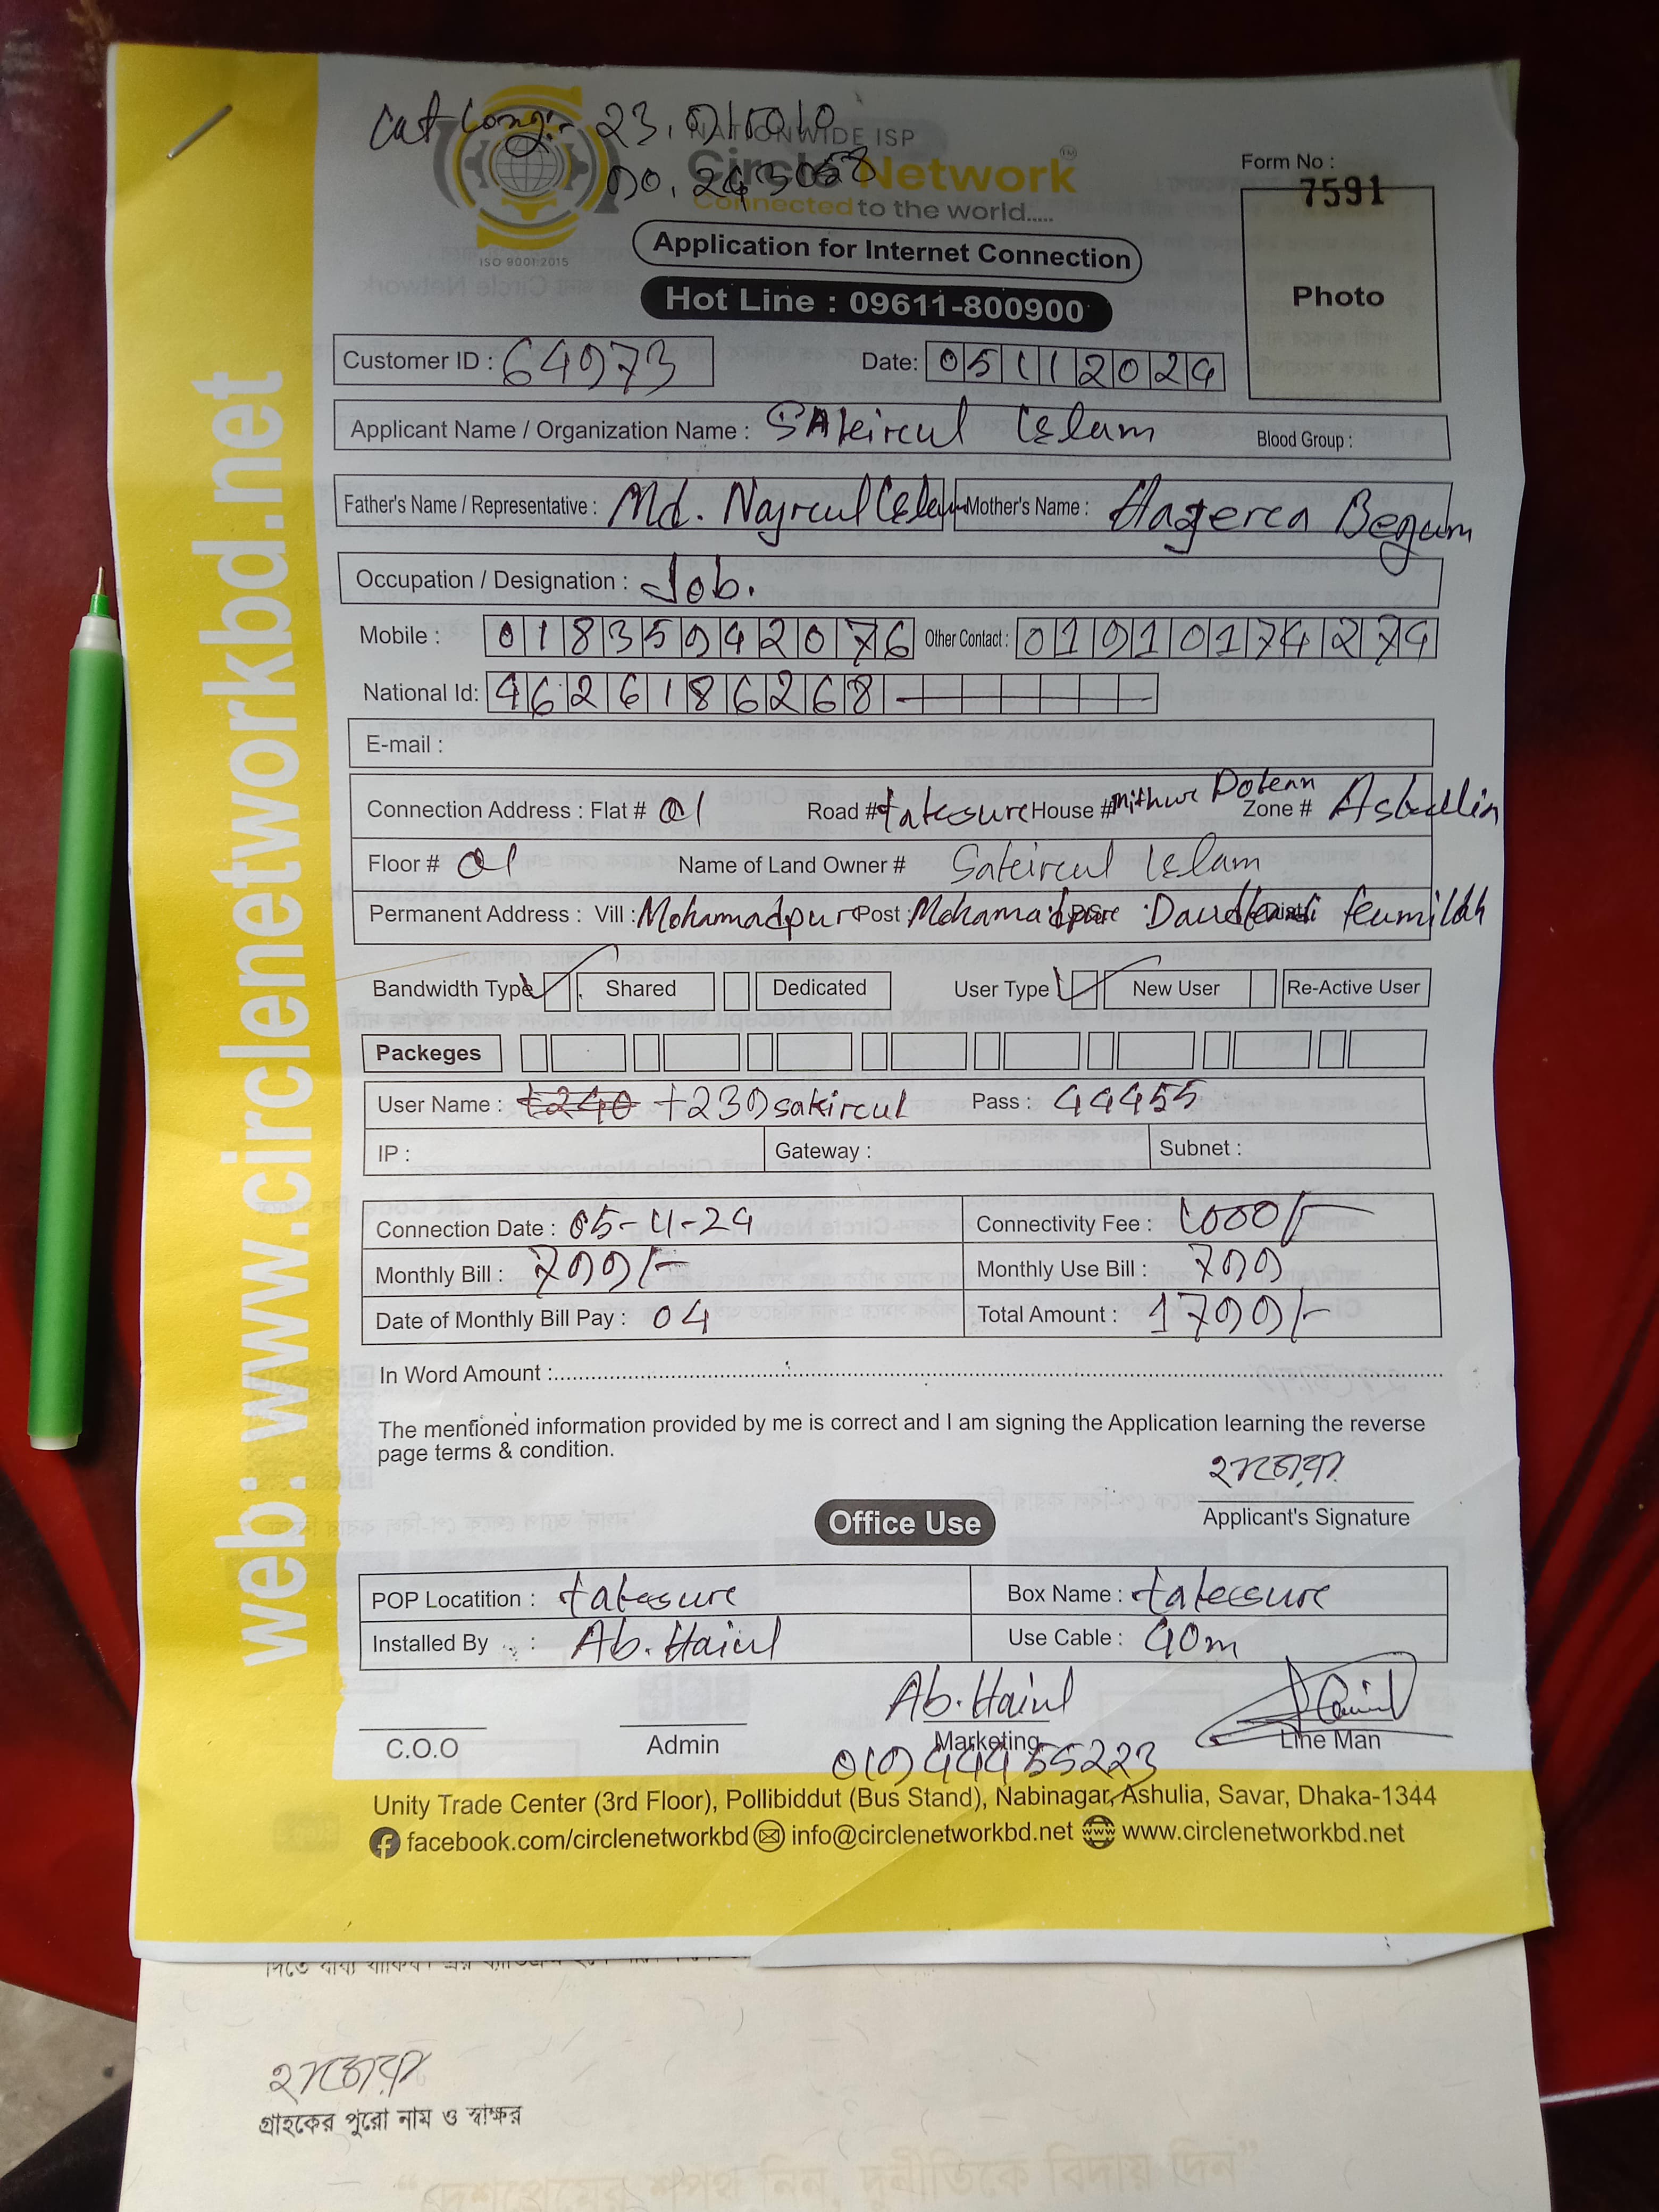 cat long:- 23.
NATIONWIDE ISP
Circle Network
Connected to the world.....
ISO 9001:2015
Form No :
7591
Photo
Application for Internet Connection
Hot Line : 09611-800900
Customer ID : 64973
Date: 05112024
Applicant Name / Organization Name : SAkircul Islam Blood Group :
Father's Name / Representative : Md. Najrcul Islam Mother's Name : Hagerca Begum
Occupation / Designation : Job.
Mobile : 01835942076 Other Contact : 01910174274
National Id: 4626186268
E-mail :
Connection Address : Flat # 01 Road # taksure House # Mithur Dokan Zone #
Floor # 01 Name of Land Owner # Sakircul Islam
Permanent Address : Vill : Mohammadpur Post : Daudkandi
Bandwidth Type Shared Dedicated User Type New User Re-Active User
Packeges
User Name : t240 t239sakircul Pass : 44455
IP : Gateway : Subnet :
Connection Date : 05-11-24 Connectivity Fee : 1000/-
Monthly Bill : 700/- Monthly Use Bill : 700
Date of Monthly Bill Pay : 04 Total Amount : 1700/-
In Word Amount :
The mentioned information provided by me is correct and I am signing the Application learning the reverse
page terms & condition.
হাজেরা
Applicant's Signature
Office Use
POP Locatition : taksure Box Name : taksure
Installed By : Ab. Hainl Use Cable : 40m
Ab. Hainl
C.O.O Admin Marketing Line Man
01944455223
Unity Trade Center (3rd Floor), Pollibiddut (Bus Stand), Nabinagar, Ashulia, Savar, Dhaka-1344
facebook.com/circlenetworkbd info@circlenetworkbd.net www.circlenetworkbd.net
web: www.circlenetworkbd.net
হাজেরা
গ্রাহকের পুরো নাম ও স্বাক্ষর
“দেশপ্রেমের শপথ নিন, দুর্নীতিকে বিদায় দিন”